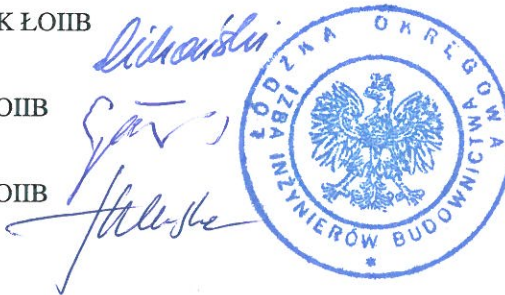 K ŁOIIB
OIIB
OIIB
ŁÓDZKA OKRĘGOWA
IZBA INŻYNIERÓW BUDOWNICTWA
*